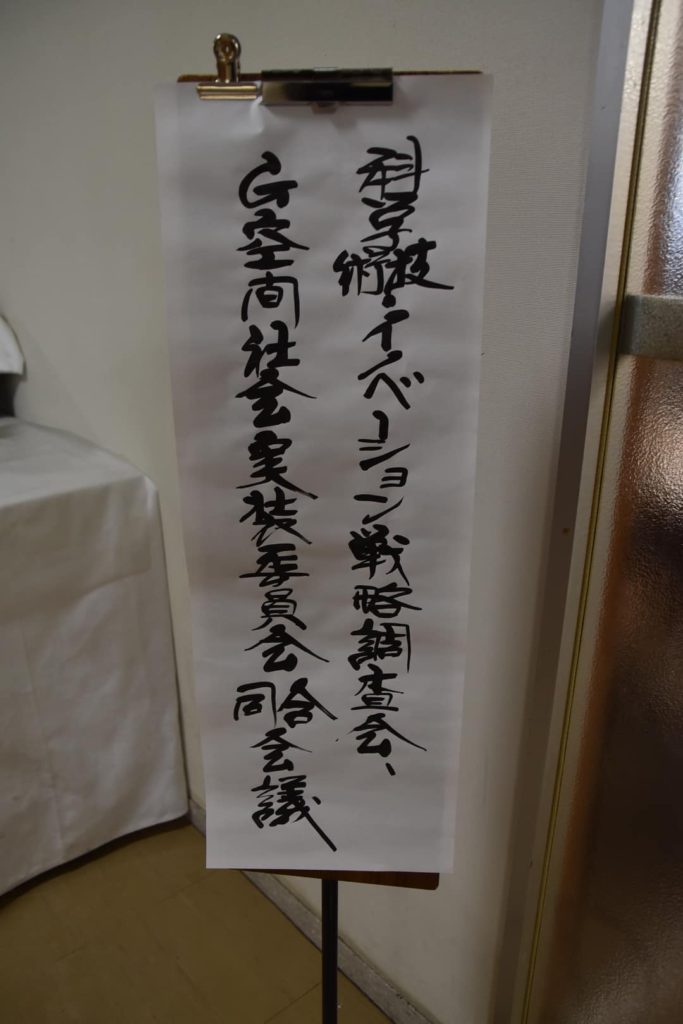 科学技術・イノベーション戦略調査会、
G空間社会実装委員会合同会議